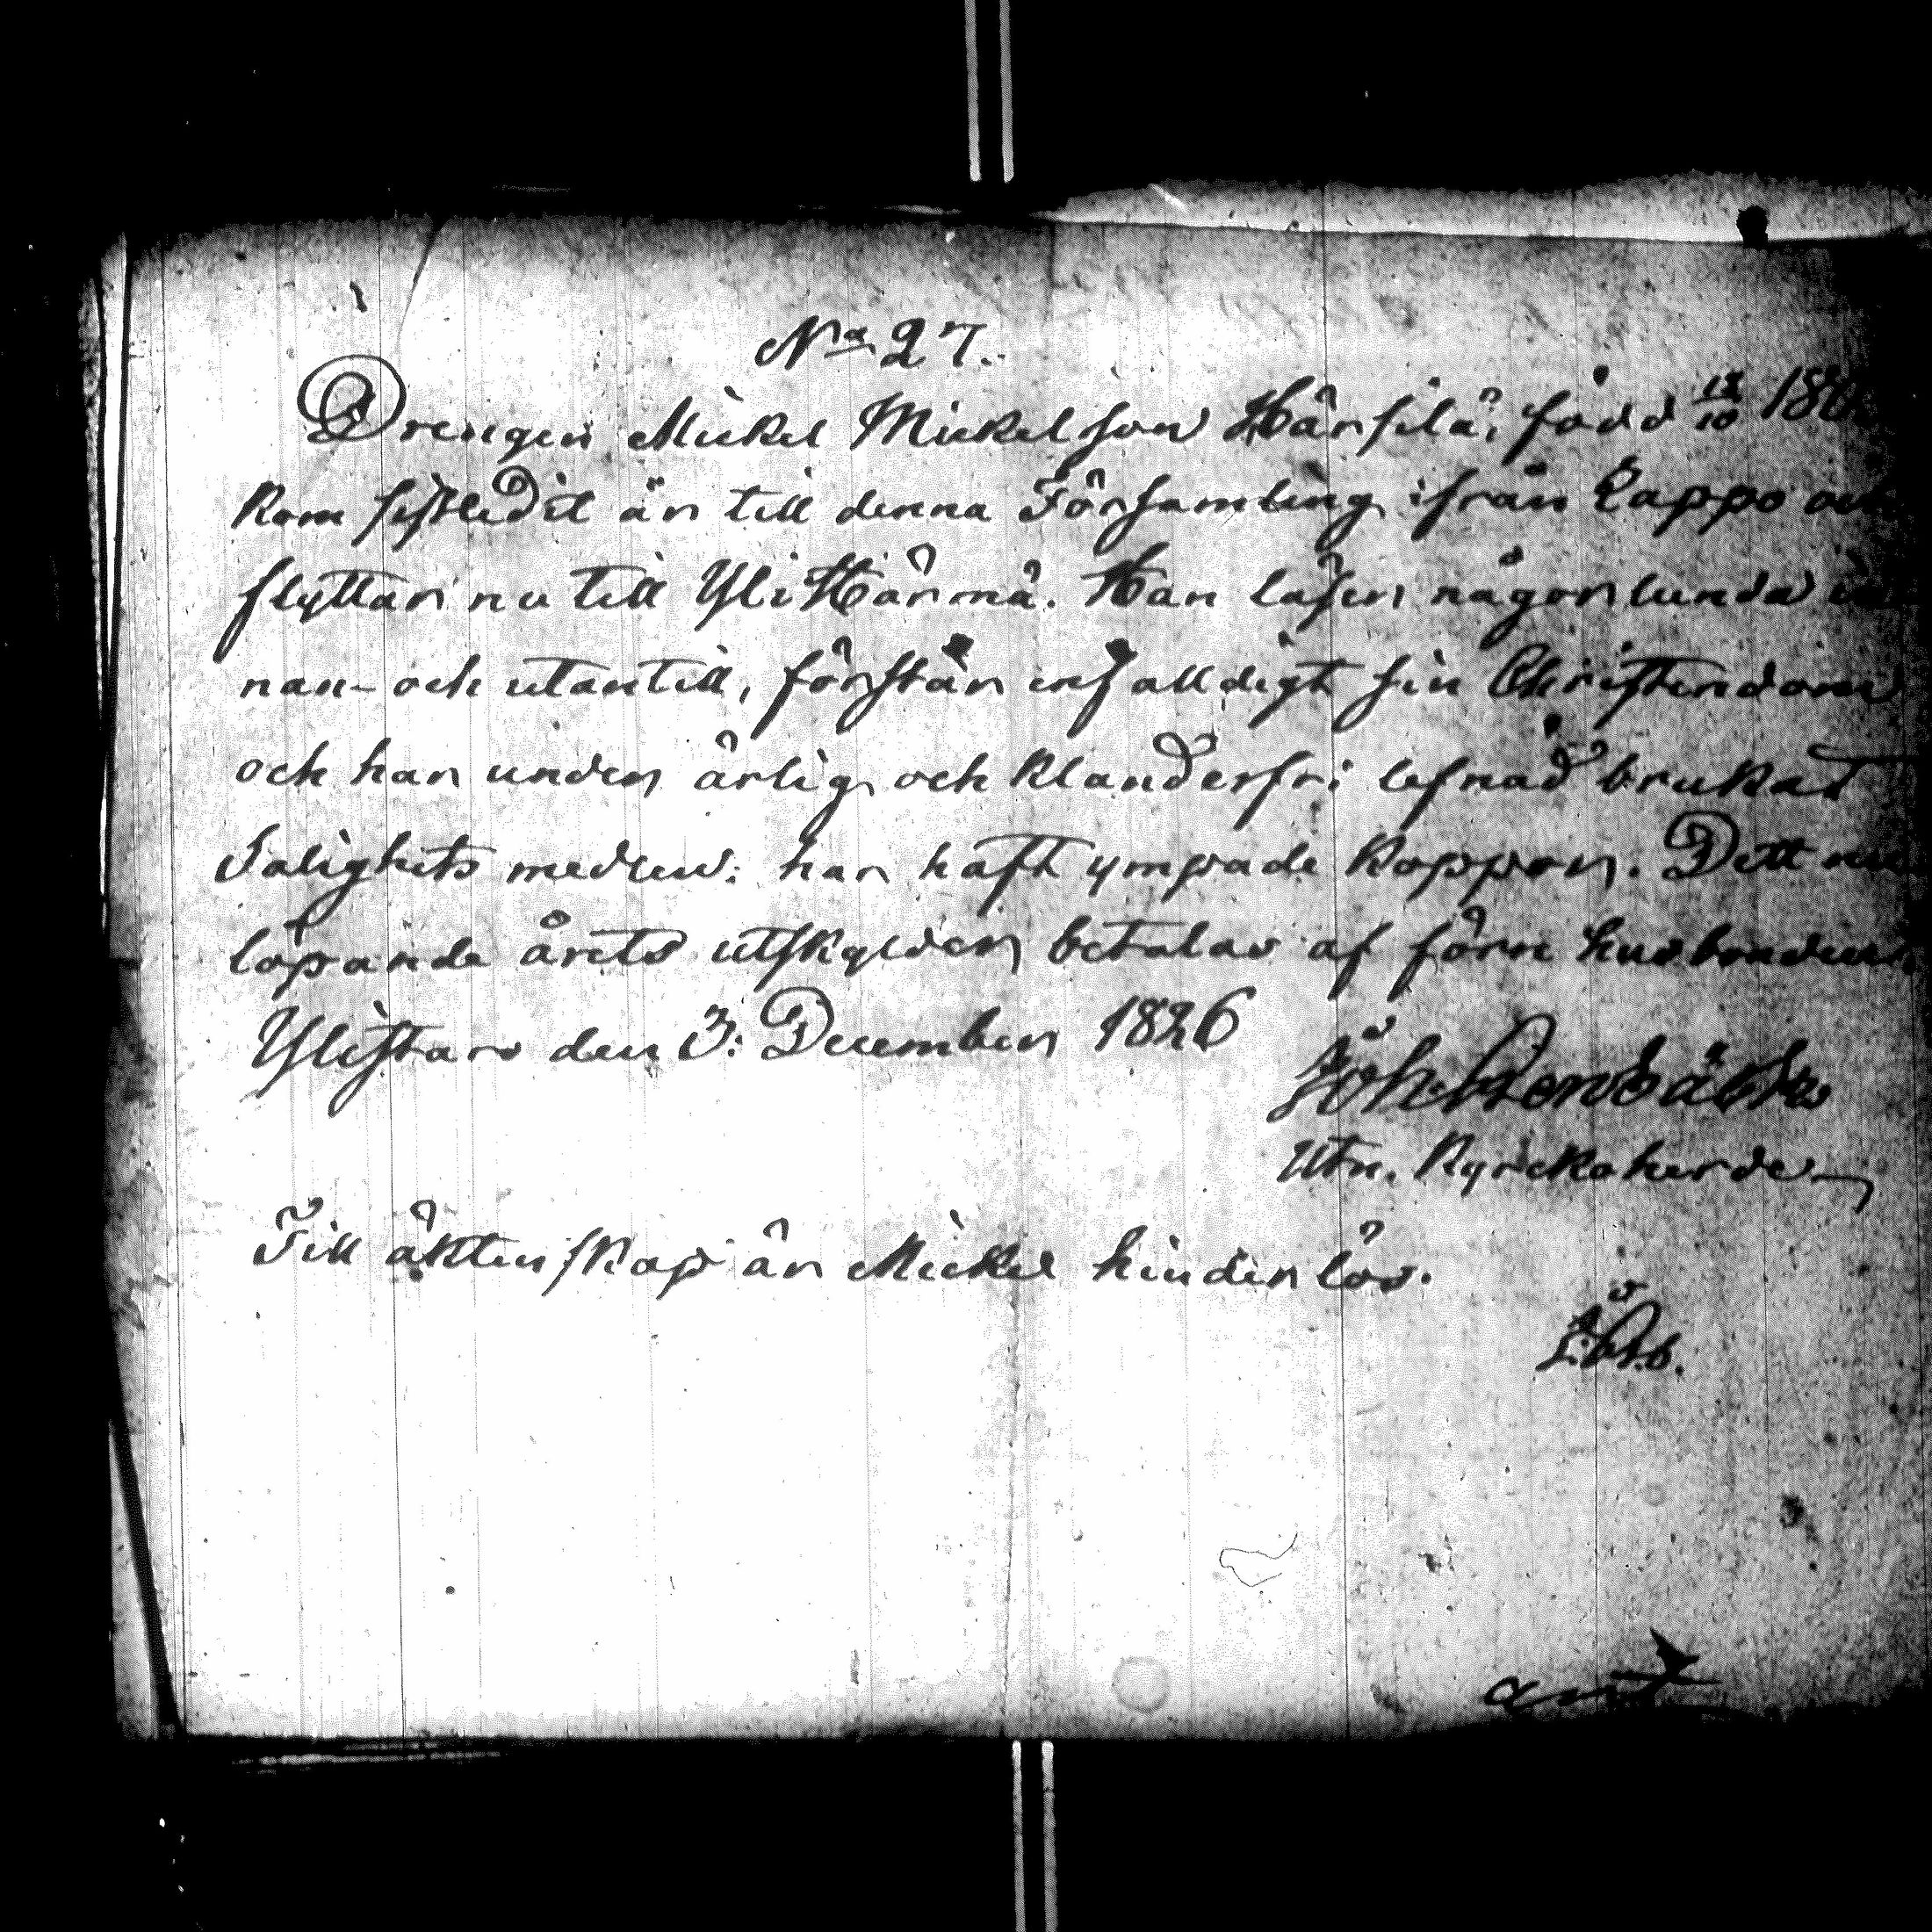 No 27.
Drengen Mickel Mickelsson Härsilä, född 18/10 180
Kom sistledit år till denna Församling ifrån Lappo och
flyttar nu till Yli Härmä. Han läser någorlunda in
nan- och utantill, förstår enfalldigt sin Christendom
och har under ärlig och klanderfri lefnad brukat
Salighets medlen; har haft ympade Koppor. Dett nu
löpande årets utskylder betalas af förre husbonden.
Ylistaro den 3: December 1826
Joh.
Utn. Kyrckoherde
Till äktenskap är Mickel hinderlös.